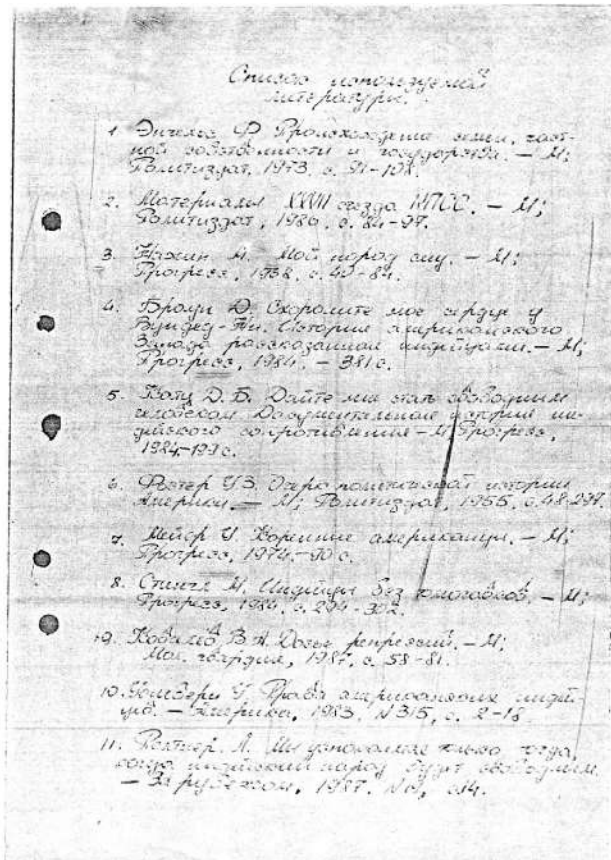 Список используемой
литературы.
1. Энгельс Ф. Происхождение семьи, част-
ной собственности и государства. — М;
Политиздат, 1973, с.
2. Материалы XXVII съезда КПСС. — М;
Политиздат, 1986, с. 84-97.
3. М. Мой народ сиу. — М;
Прогресс, с. 40-84.
4. Браун Д. Схороните мое сердце у
Вундед-Ни. История американского
Запада рассказанная индейцами. — М;
Прогресс, 1984. — 381 с.
5. Д. Б. Дайте мне стать свободным
человеком Документальная история ин-
дейского сопротивления — М, Прогресс,
1984.
6. Фостер У.З. Очерк политической истории
Америки. — М; Политиздат, 1955, с. 48-
7. Мейер У. Коренные американцы. — М;
Прогресс, 1974. — 90 с.
8. Стингл М. Индейцы без томагавков. — М;
Прогресс, 1984, с.
Ковалев В.А. Досье репрессий. — М;
Мол. гвардия, 1987, с. 58-81.
10. У. Права американских индей-
цев. — Америка, 1983, N 315, с. 2-18.
11. А. Мы успокоимся только тогда,
когда индейский народ будет свободным.
— За рубежом, 1987, с14.